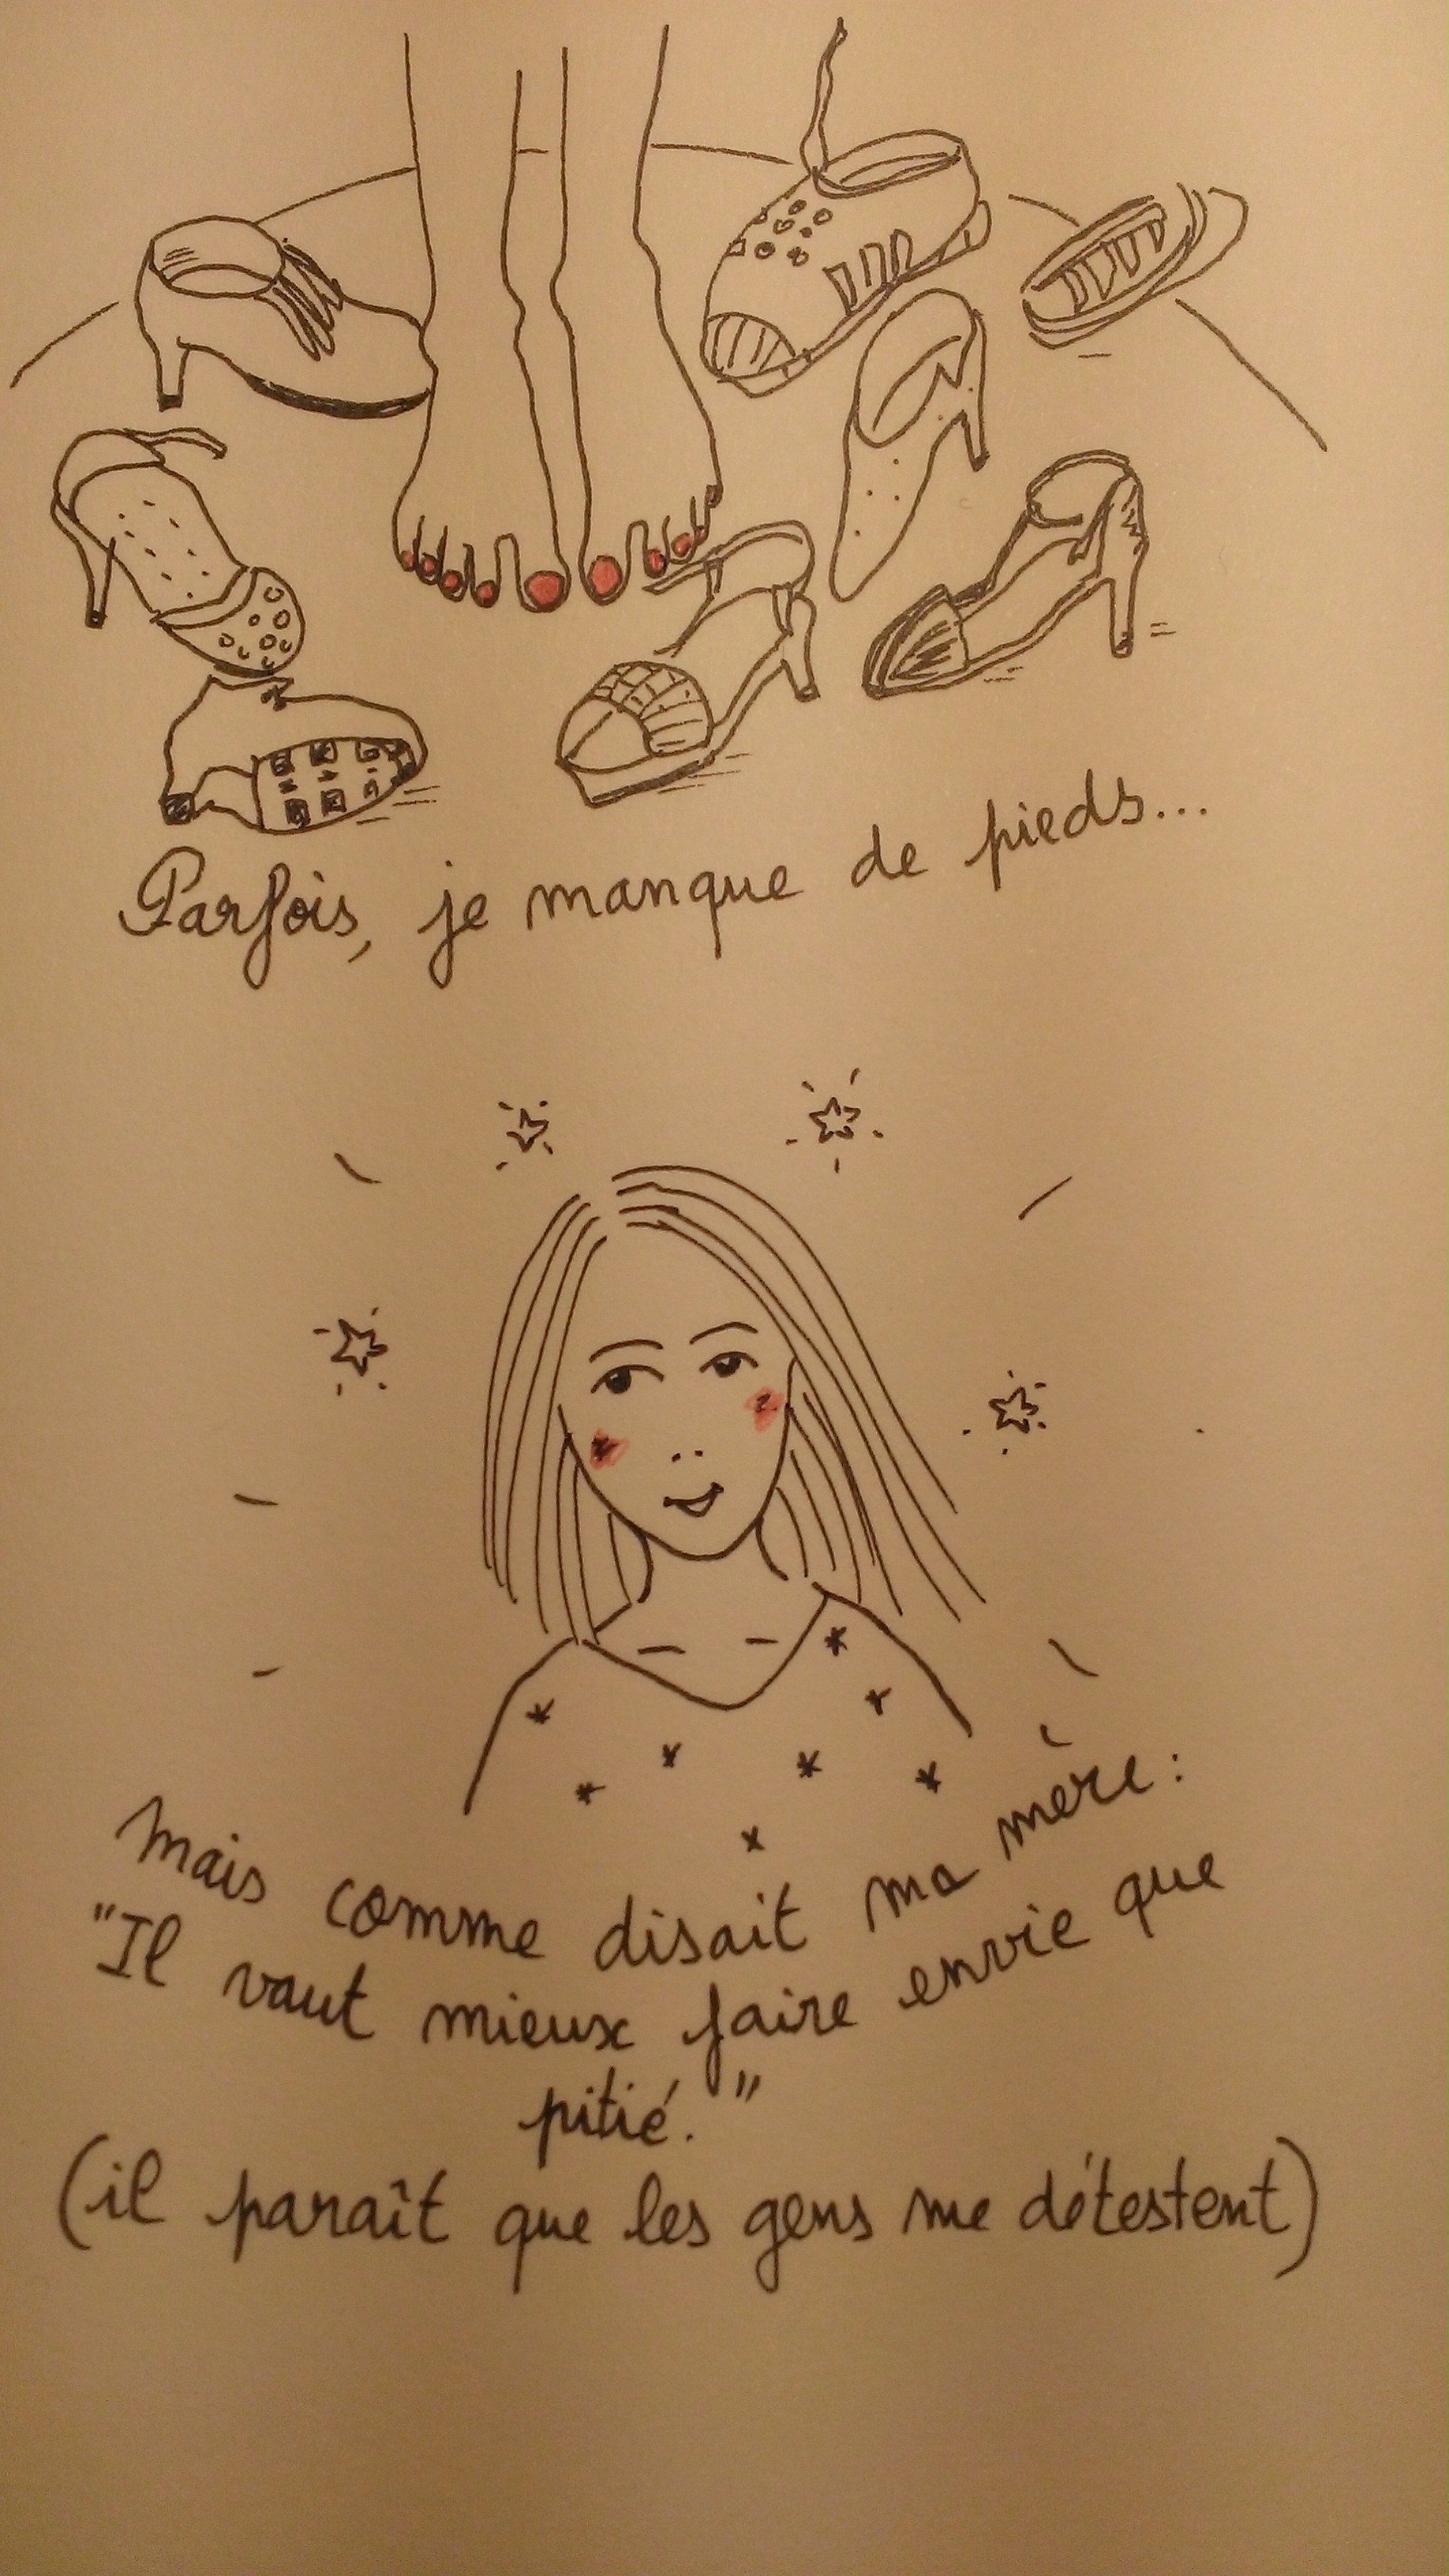 Parfois, je manque de pieds...
Mais comme disait ma mère :
"Il vaut mieux faire envie que
pitié."
(il paraît que les gens me détestent)